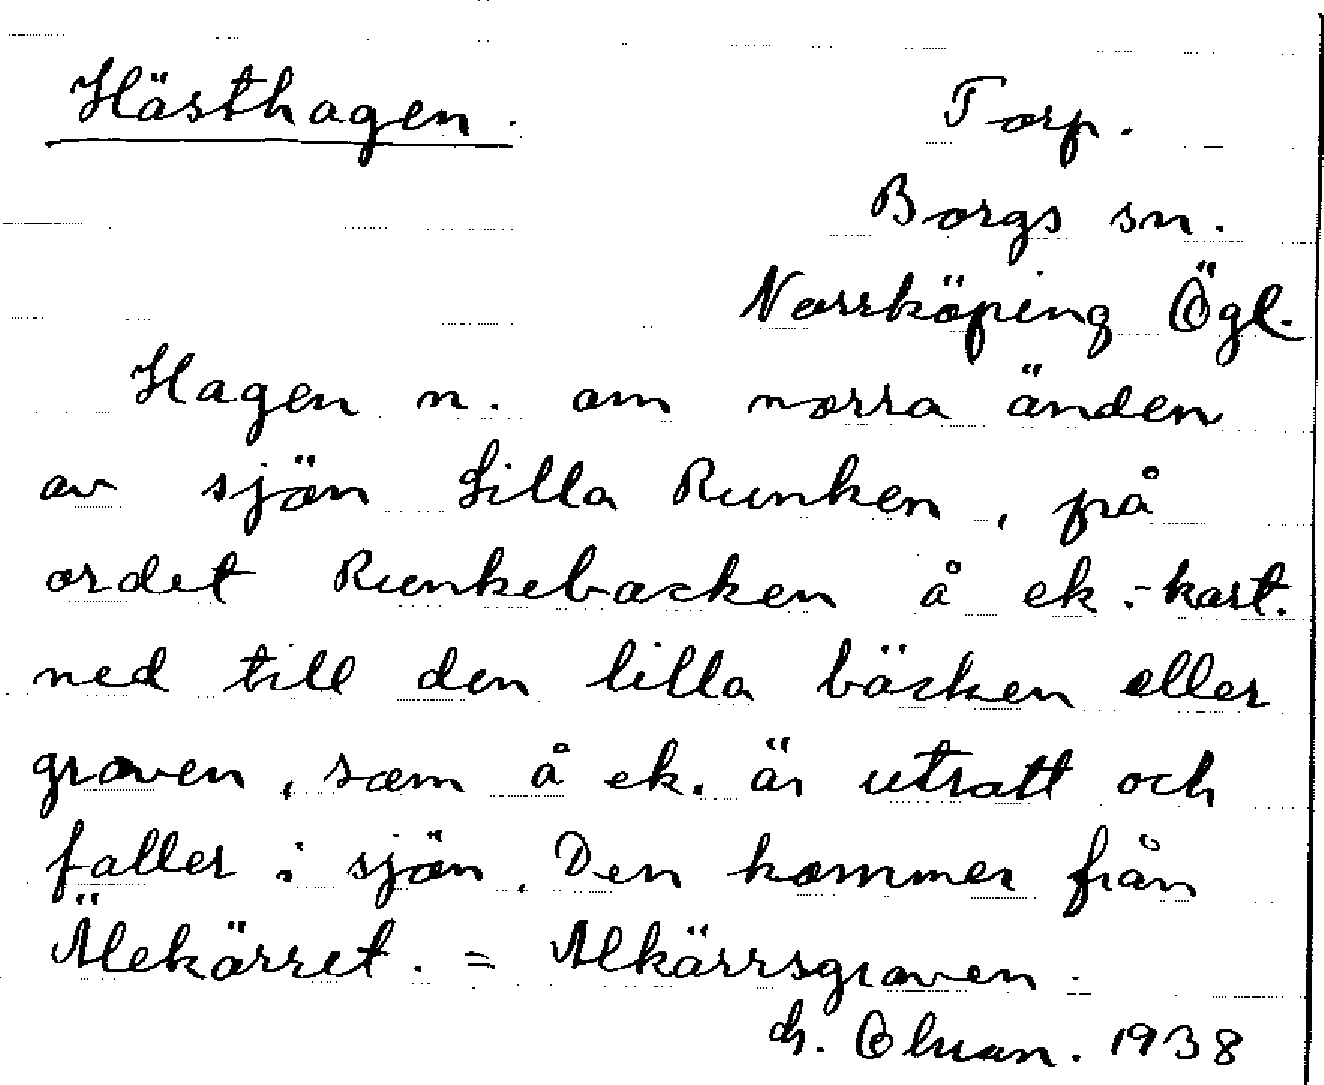 Hästhagen.
Torp.
Borgs sn.
Norrköping Ögl.
Hagen n. om norra änden
av sjön Lilla Runken, på
ordet Runkebacken å ek.-kart.
ned till den lilla bäcken eller
graven, som å ek. är utsatt och
faller i sjön. Den kommer från
Älekärret. = Alkärrsgraven.
1938